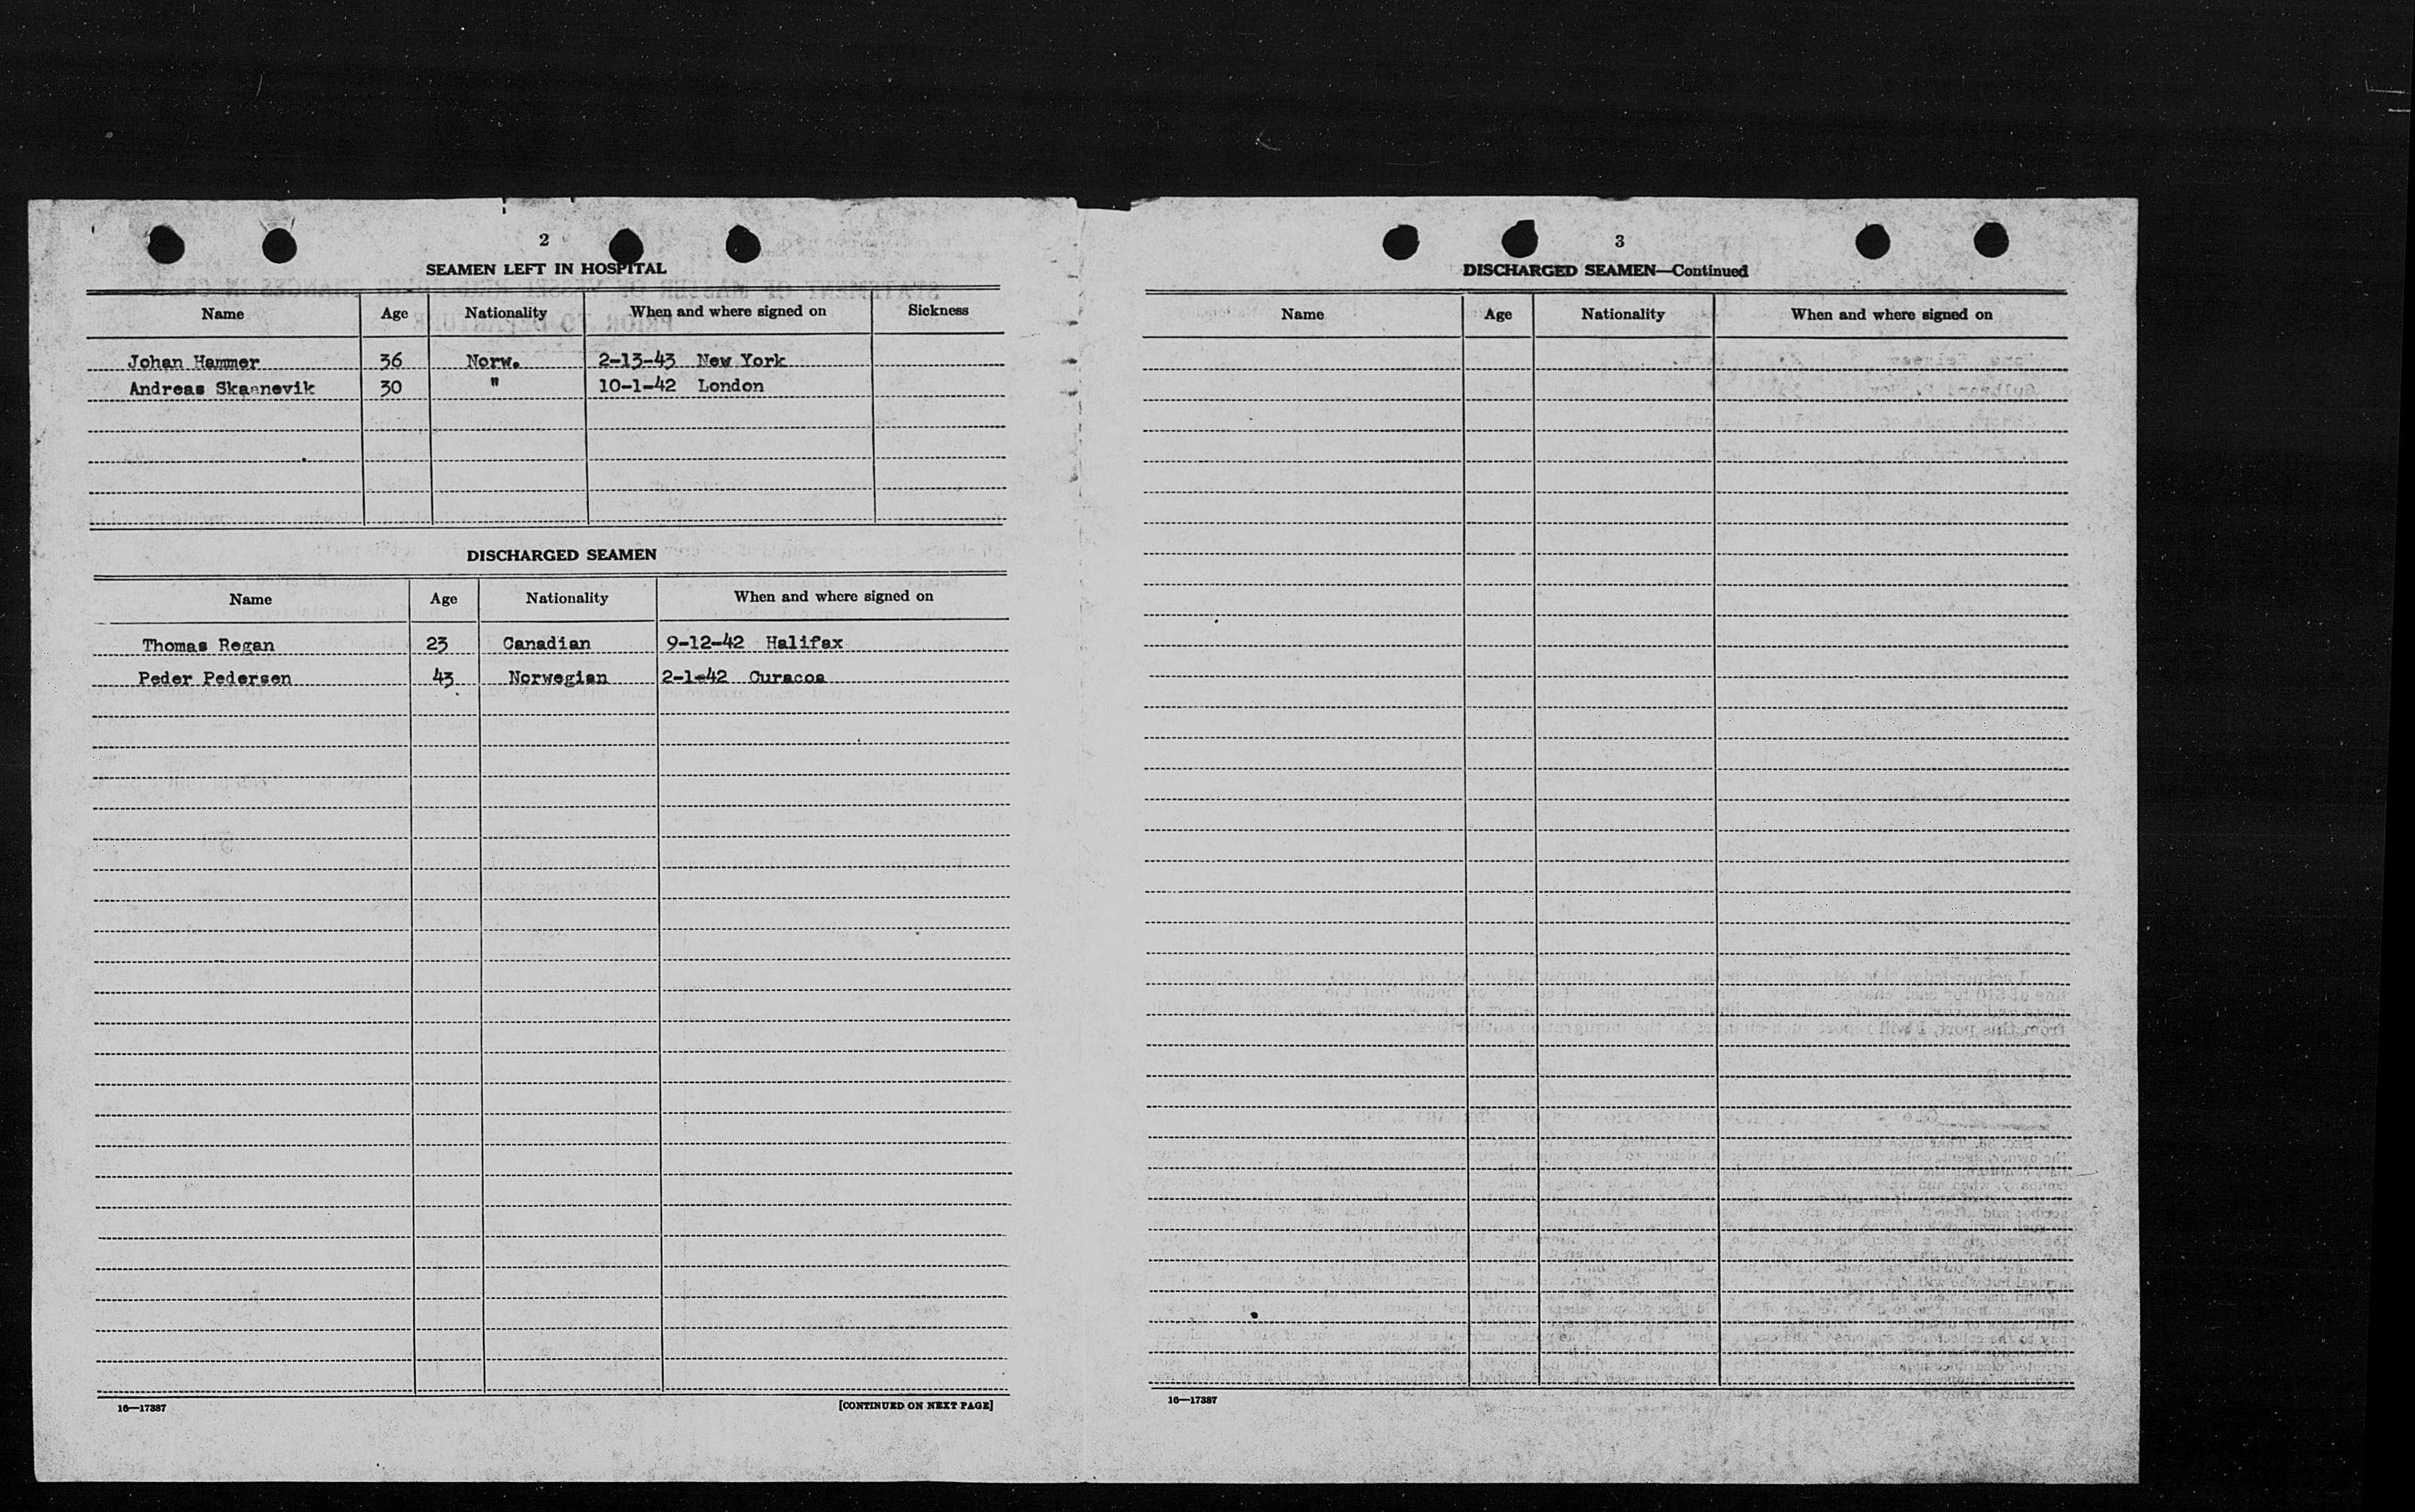 2
SEAMEN LEFT IN HOSPITAL
Name Age Nationality When and where signed on Sickness
Johan Hammer 36 Norw. 2-13-43 New York
Andreas Skaanevik 30 " 10-1-42 London
DISCHARGED SEAMEN
Name Age Nationality When and where signed on
Thomas Regan 23 Canadian 9-12-42 Halifax
Peder Pedersen 43 Norwegian 2-1-42 Curacoa
16—17387 [CONTINUED ON NEXT PAGE]
3
DISCHARGED SEAMEN—Continued
Name Age Nationality When and where signed on
16—17387